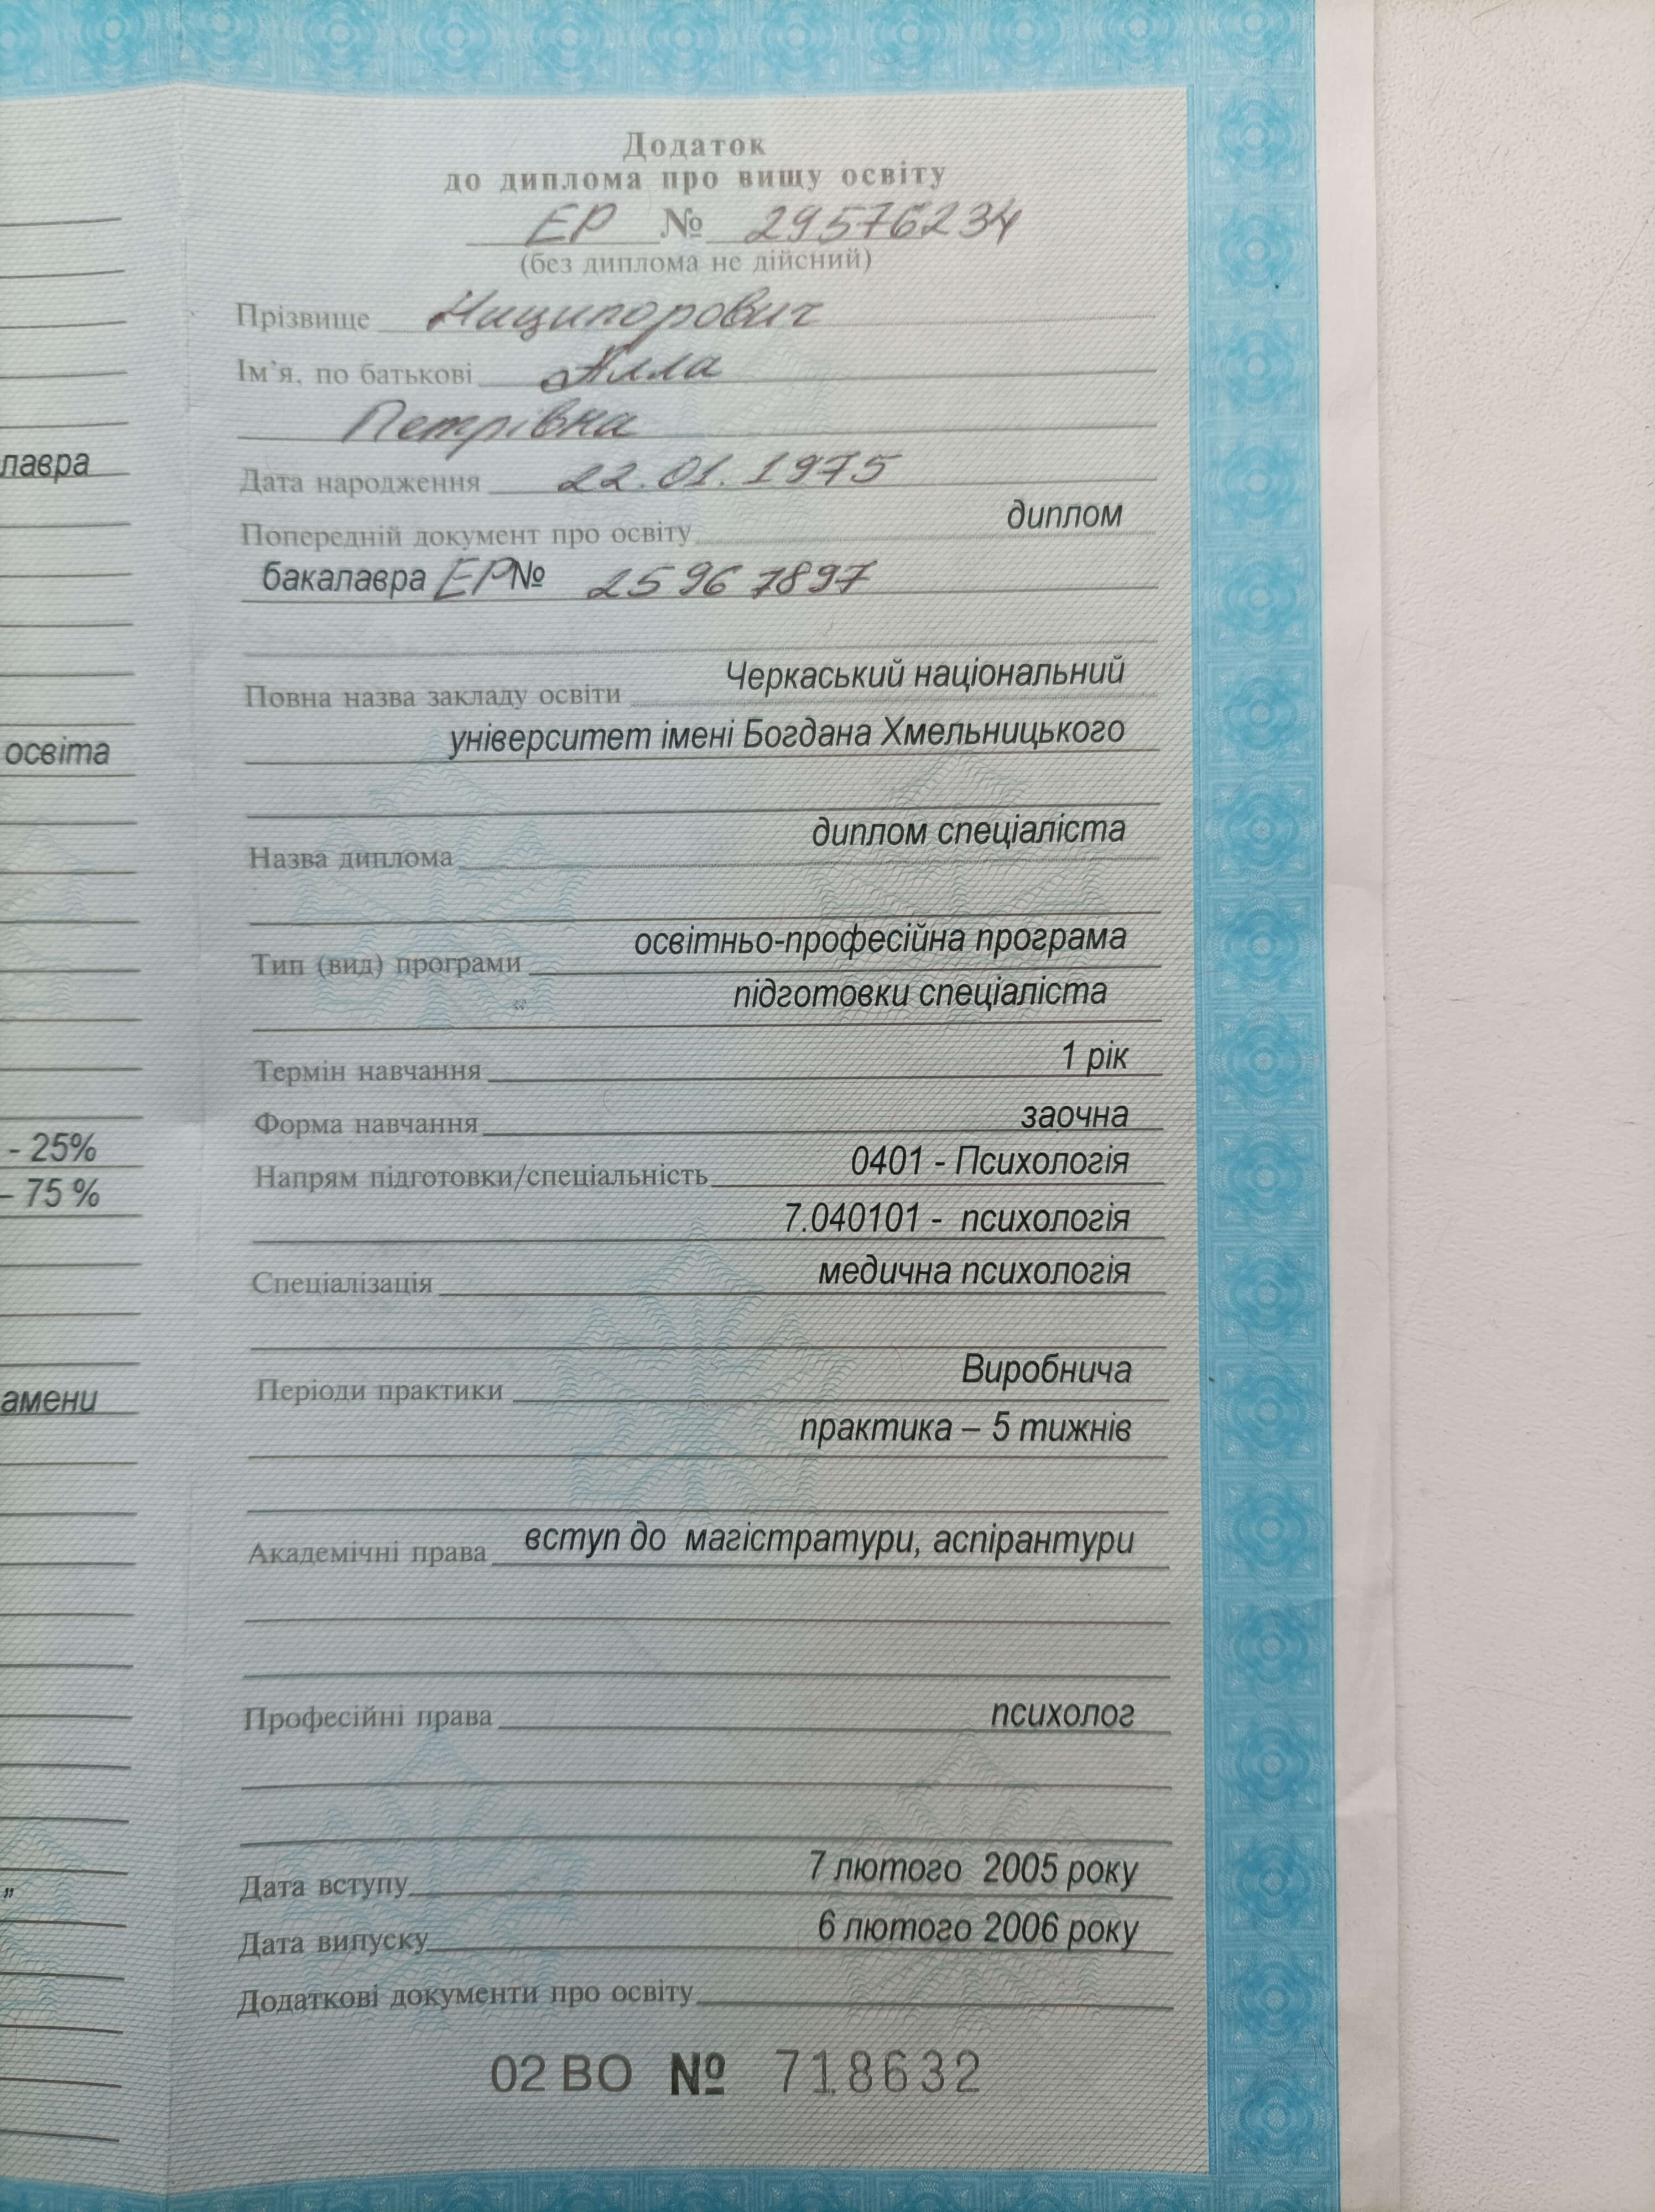 Додаток
до диплома про вищу освіту
ЕР № 29576234
(без диплома не дійсний)
Прізвище Ничипорович
Ім'я, по батькові Алла
Петрівна
Дата народження 22.01.1975
Попередній документ про освіту диплом
бакалавра ЕР№ 25967897
Повна назва закладу освіти Черкаський національний
університет імені Богдана Хмельницького
Назва диплома диплом спеціаліста
Тип (вид) програми освітньо-професійна програма
підготовки спеціаліста
Термін навчання 1 рік
Форма навчання заочна
Напрям підготовки/спеціальність 0401 - Психологія
7.040101 - психологія
Спеціалізація медична психологія
Періоди практики Виробнича
практика – 5 тижнів
Академічні права вступ до магістратури, аспірантури
Професійні права психолог
Дата вступу 7 лютого 2005 року
Дата випуску 6 лютого 2006 року
Додаткові документи про освіту
02 ВО № 718632
лавра
освіта
- 25%
– 75 %
амени
”